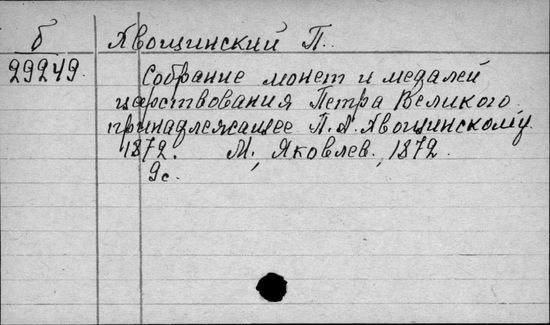 б
Хвощинский П.
29249.
Собрание монет и медалей
царствования Петра Великого
принадлежащее П.А.Хвощинскому
1872. М., Яковлев, 1872.
9с.